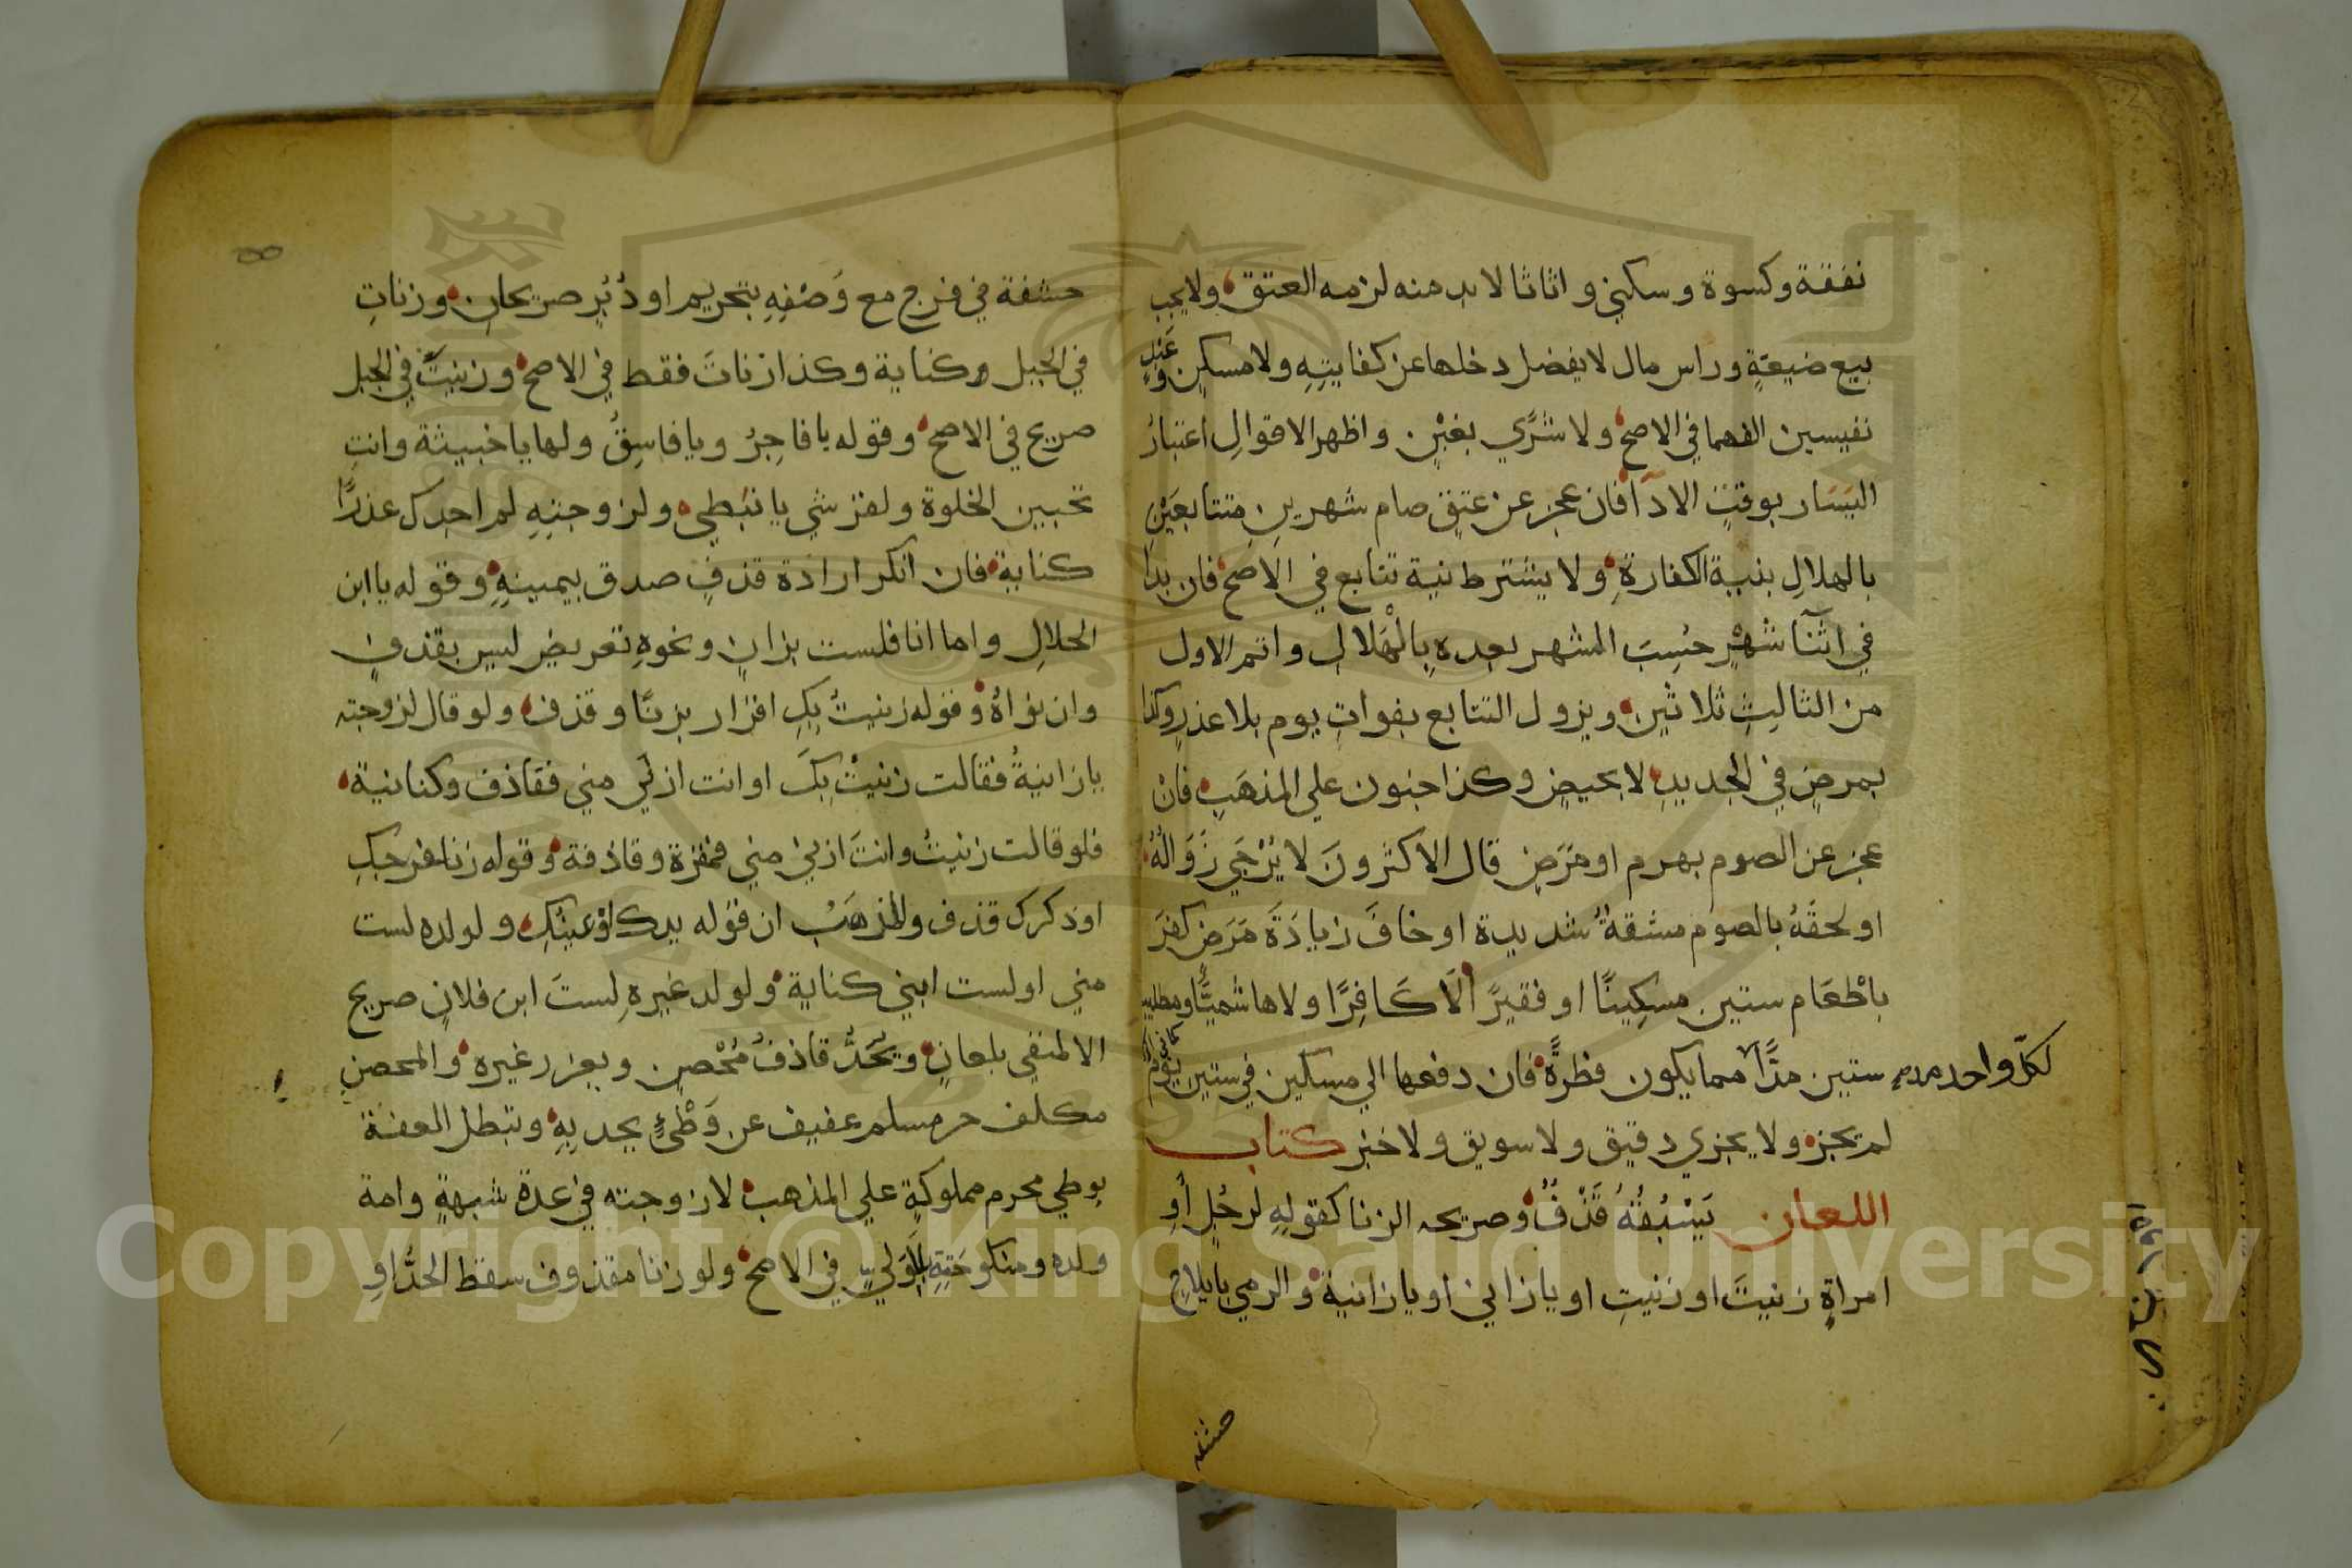 نفقة وكسوة وسكني واثاثا لا بد منه لزمه العتق ولا يجب
بيع ضيعةٍ وراس مال لا يفضل دخلها عن كفايتِهِ ولا مسكنٍ وعَبْدٍ
نفيسين الفهما في الاصح ولا شرًي بغبْنٍ واظهر الاقوالِ اعتبارُ
اليَسَار بوقتِ الادَآ فان عجز عن عتقٍ صام شهرينِ متتابعَيْنِ
بالهلالِ بنية الكفارةِ ولا يشترط نية تتابع في الاصح فان بدا
في اثنآ شهْرٍ حُسِبَ الشهر بعده بِالْهَلالِ واتم الاول
من الثالِثِ ثلاثين ويزول التتابع بفواتِ يوم بلا عذرٍ وكذا
بمرضٍ في الجديدِ لا بحيضٍ وكذا جنون علي المذهَبِ فانْ
عجز عن الصوم بهرم او مَرَضٍ قال الاكثرونَ لا يُرْجَي زَوَالُهُ
او لحقَهُ بالصوم مشقةٌ شديدة او خافَ زيادَةَ مَرَضٍ كفرَ
باطْعَام ستين مسكِينًا او فقيرً الَا كَافِرًا ولا هاشميًّا ومطلبيا
ستين مدًّا مما يكون فطرةً فان دفعها الي مسكين في ستين يوم
لكلّ واحد مدم
لم يجزه ولا يجزي دقيق ولا سويق ولا خبز كتاب
اللعان يَسْبُقُهُ قَذْفٌ وصريحه الزنا كقولِهِ لرجُلٍ أوِ
امراةٍ زنيتَ او زنيتِ او يا زاني او يا زانية والرمي بايلاجِ
حشفه
حشفة في فرج مع وَصْفِهِ بتحريم او دُبُرٍ صريحان وزناتِ
في الجبل وكناية وكذا زناتَ فقط في الاصح وزنيتَ في الجبل
صريح في الاصح وقوله يا فاجِرُ ويا فاسِقُ ولها يا خبيثة وانتِ
تحبين الخلوة ولقرشي يا نبَطي ولزوجتِهِ لم اجدك عذرًا
كناية فان انكر ارادة قذفٍ صدق بيمينِهِ وقوله يا ابن
الحلالِ واما انا فلست بزانٍ ونحوهِ تعريض ليس بقذفٍ
وان نواهُ وقوله زنيتُ بِكِ اقرار بزنًا وقذف ولو قال لزوجته
يا زانيةُ فقالت زنيتُ بِكَ او انت ازني مني فقاذف وكنانية
فلو قالت زنيتُ وانتَ ازني مني فمقرة وقاذفة وقوله زنا فرجكِ
او ذكرك قذف والمذهَبُ ان قوله يدك او عينُكِ ولولده لست
مني او لست ابني كناية ولولد غيرهِ لستَ ابن فلانٍ صريح
الا لمنفي بلعانٍ ويُحَدُّ قاذفُ مُحْصِنٍ ويعزر غيره والمحصن
مكلف حر مسلم عفيف عن وَطْيٍ يحد بِهِ وتبطل العفة
بوطي محرم مملوكةٍ علي المذهب لا زوجته في عدة شبهةٍ وامة
ولده ومنكوحَتِهِ بلا وَليٍ في الاصح ولو زنا مقذوف سقط الحدُّ اوِ
Copyright © King Saud University